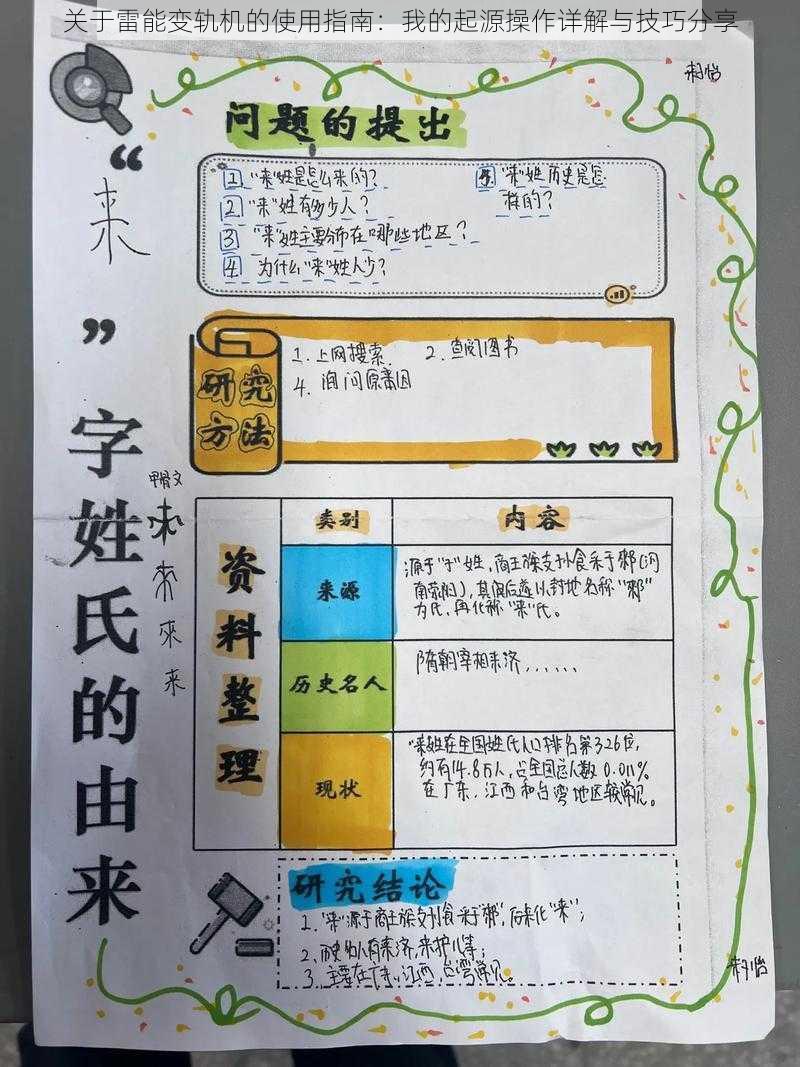 关于雷能变轨机的使用指南：我的起源操作详解与技巧分享
“来”字姓氏的由来
甲骨文
来
问题的提出
1 “来”姓是怎么来的？
2 “来”姓有多少人？
3 “来”姓主要分布在哪些地区？
4 为什么“来”姓人少？
5. “来”姓历史是怎
样的？
研究
方法
1. 上网搜索
2. 查阅图书
4. 询问
资料整理
类别
内容
来源
源于“子”姓，商王族支孙食采于郲（河
南荥阳），其后遂以封地名称“郲”
为氏，再化称“来”氏。
历史名人
隋朝宰相来济，......
现状
“来”姓在全国姓氏人口排名第326位，
约有14.8万人，占全国总人数0.011%
在广东、江西和台湾地区较常见。
研究结论
1. “来”源于商王族支孙食采于“郲”，后来化“来”；
2. 历史名人有来济，来护儿等；
3. 主要在广东、江西、台湾常见。